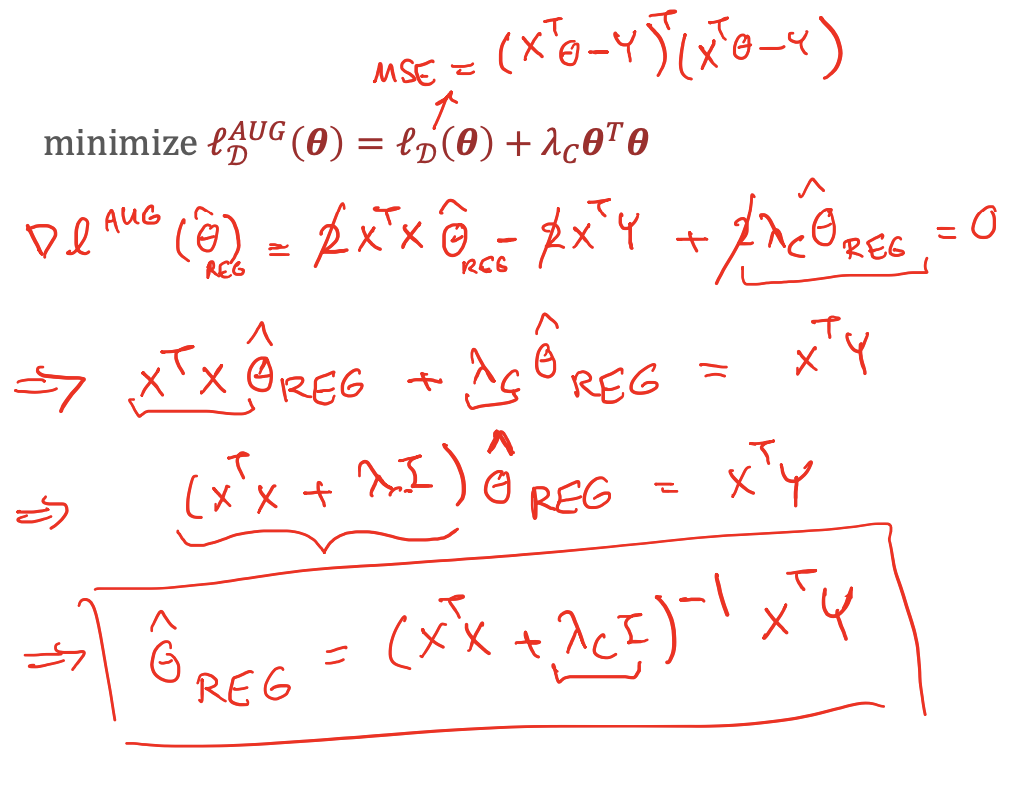 MSE = (X^T θ − Y)^T (X^T θ − Y)
minimize ℓ_𝒟^{AUG}(θ) = ℓ_𝒟(θ) + λ_C θ^T θ
∇ℓ^{AUG}(θ̂_{REG}) = 2X^T X θ̂_{REG} − 2X^T Y + 2λ_C θ̂_{REG} = 0
⇒ X^T X θ̂_{REG} + λ_C θ̂_{REG} = X^T Y
⇒ (X^T X + λ_C I) θ̂_{REG} = X^T Y
⇒ θ̂_{REG} = (X^T X + λ_C I)^{−1} X^T Y